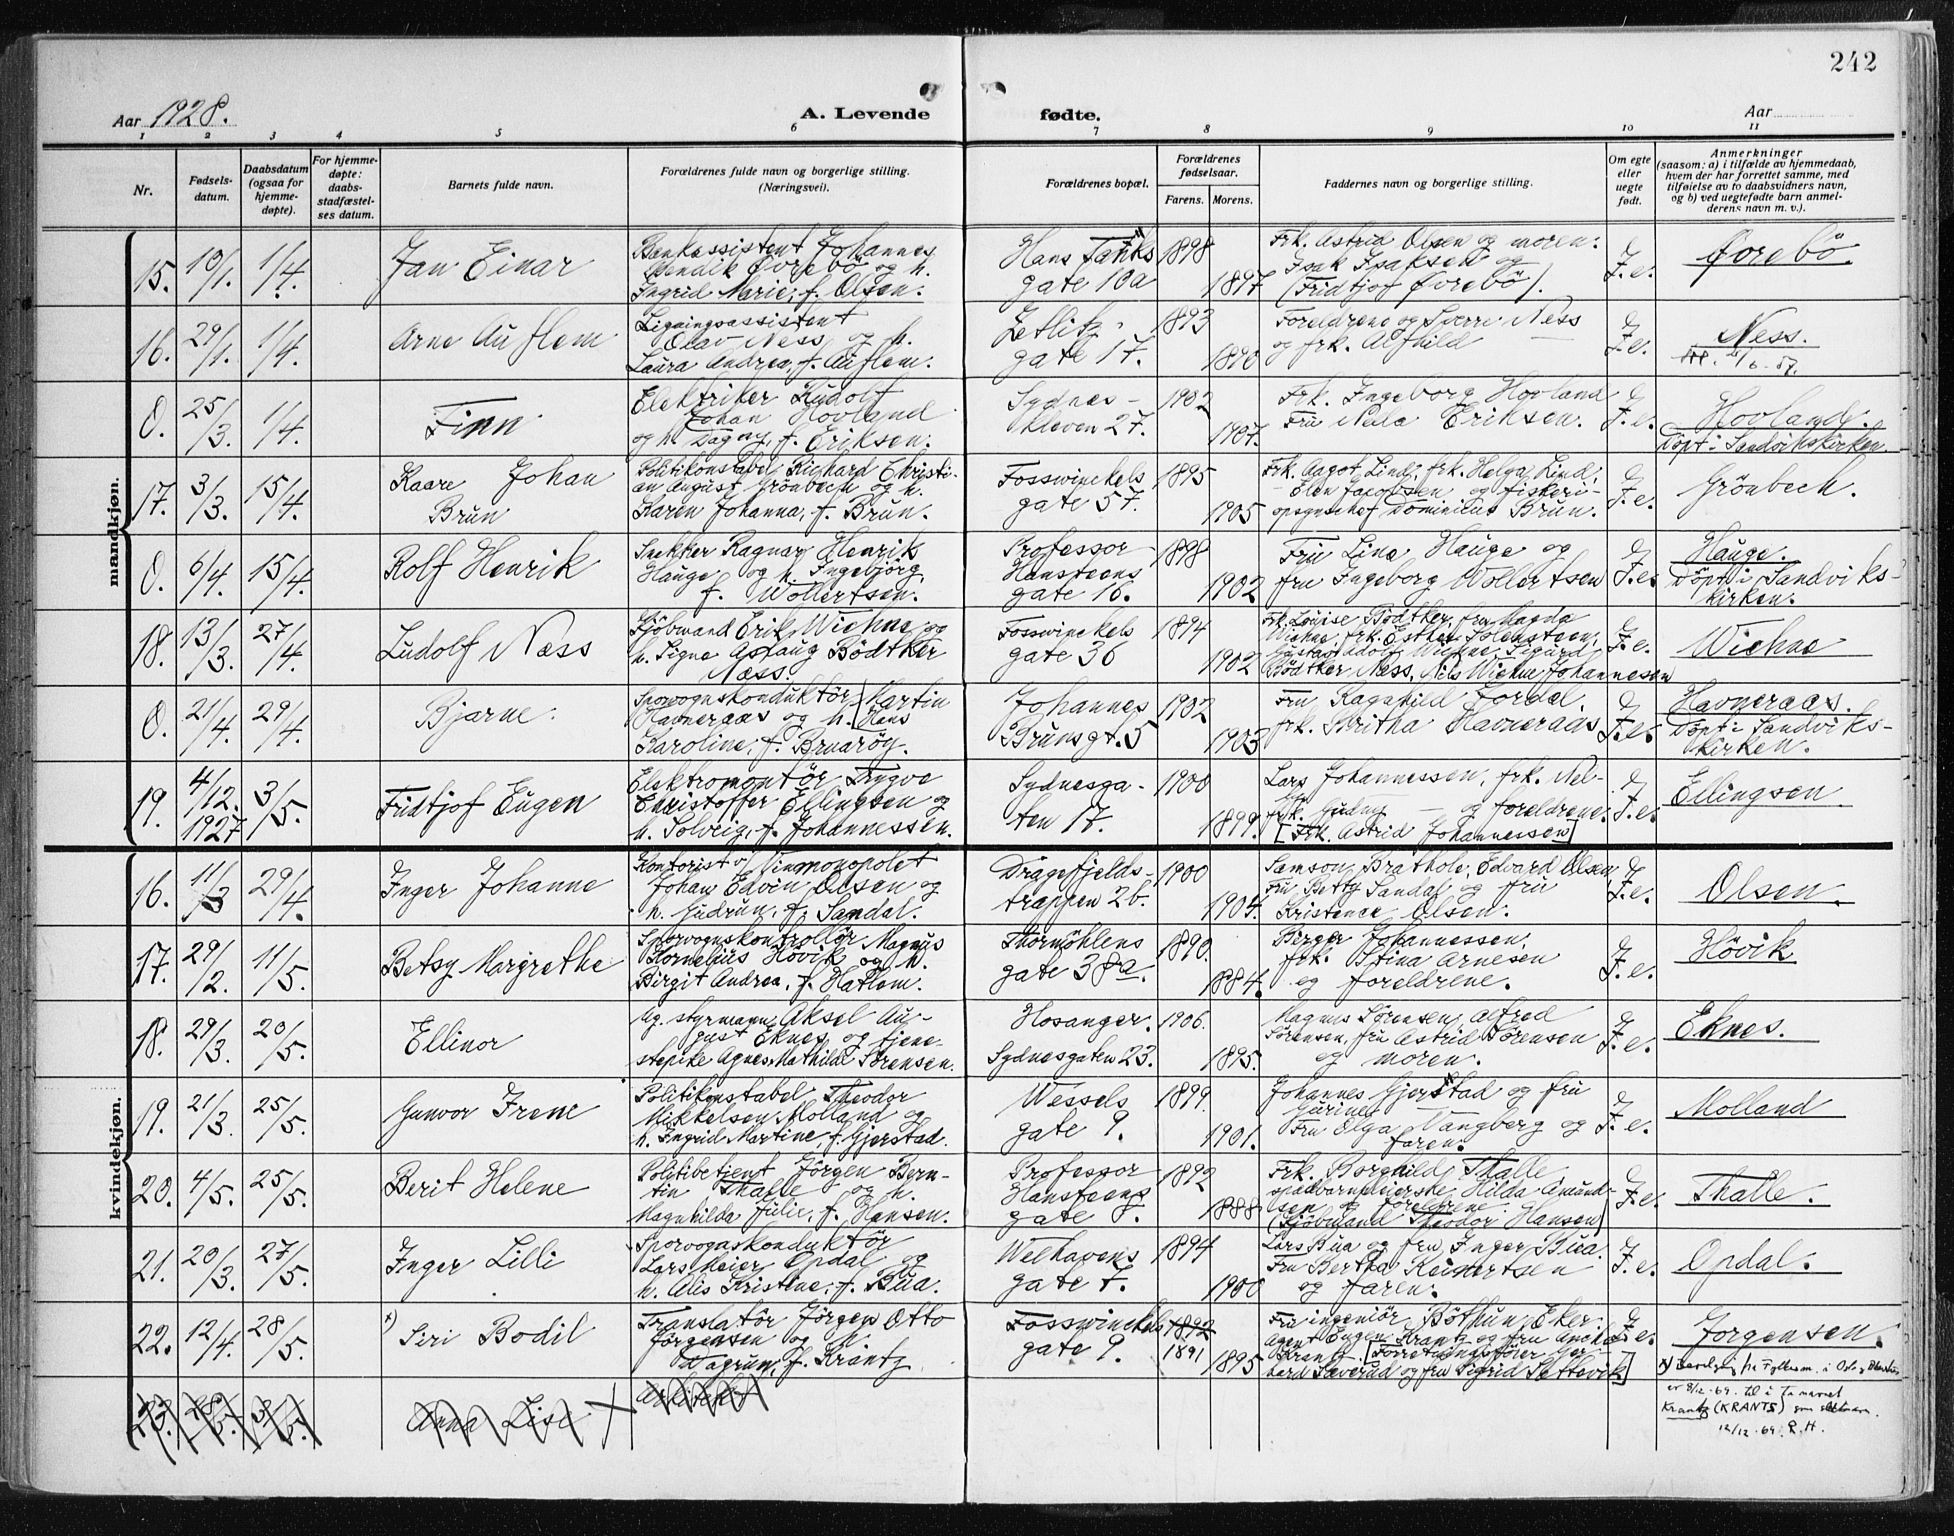 242
Aar 1928.
A. Levende
fødte.
Aar
1 2 3 4 5 6 7 8 9 10 11
Nr.
Fødsels-
datum.
Daabsdatum
(ogsaa for
hjemme-
døpte).
For hjemme-
døpte:
daabs-
stadfæstel-
ses datum.
Barnets fulde navn.
Forældrenes fulde navn og borgerlige stilling.
(Næringsvei).
Forældrenes bopæl.
Forældrenes
fødselsaar.
Farens. Morens.
Faddernes navn og borgerlige stilling.
Om egte
eller
uegte
født.
Anmerkninger
(saasom: a) i tilfælde av hjemmedaab,
hvem der har forrettet samme, med
tilføielse av to daabsvidners navn,
og b) ved uegtefødte barn anmel-
derens navn m. v.).
mandkjøn.
15. 10/1. 1/4.
Jan Einar
Bankassistent Johannes
Bendik Øvrebö og h.
Ingrid Marie, f. Olsen.
Hans Tanks
gate 10a
1898
1897
Frk. Astrid Olsen og moren.
Isak Isaksen og
(Fridtjof Øvrebö).
F. e.
Øvrebö.
16. 29/1. 1/4.
Arne Auflem
Ligningsassistent
Olav Ness og h.
Laura Andrea, f. Auflem.
Zetlitz-
gate 17.
1893
1890
Foreldrene og Sverre Ness
og frk. Alfhild —
F. e.
Ness.
0. 25/3. 1/4.
Finn
Elektriker Rudolf
Johan Hovland
og h. Dagny, f. Eriksen.
Sydnes-
kleven 27.
1902
1907.
Frk. Ingeborg Hovland
Fru Nella Eriksen.
F. e.
Hovland.
Döpt i Sandvikskirken.
17. 3/3. 15/4.
Kaare Johan
Brun
Politikonstabel Richard Christi-
an August Grönbech og h.
Karen Johanna, f. Brun.
Fosswinckels
gate 57.
1895
1905
Frk. Aagot Lind, frk. Helga Lind,
Elen Jacobsen og fiskeri-
opsynschef Dominicus Brun.
F. e.
Grönbech.
0. 6/4. 15/4.
Rolf Henrik
Snekker Ragnar Henrik
Hauge og h. Ingebjörg,
f. Wollertsen.
Professor
Hansteens
gate 16.
1898
1902
Fru Lina Hauge og
fru Ingeborg Wollertsen
F. e.
Hauge.
Döpt i Sandviks-
kirken.
18. 13/3. 27/4.
Ludolf Næss
Sjömand Erik Wiehne og
h. Signe Aslaug Bödtker
Næss.
Fosswinckels
gate 36
1894
1902
Frk. Louise Bödtker, fru Magda
Wiehne, frk. Esther Solensteen,
Gustav Adolf Wiehne, Sigurd
Bödtker Næss, Nils Wiehne Johannesen
F. e.
Wiehne
0. 21/4. 29/4.
Bjarne.
Sporvognskonduktör Martin
Havneraas og h. Hans
Karoline, f. Bruaröy.
Johannes
Brunsgt. 5
1902
1903
Fru Ragnhild Fordal,
frk. Britha Havneraas
F. e.
Havneraas.
Döpt i Sandviks-
kirken.
19. 4/12. 1927 3/5.
Fridtjof Eugen
Elektromontör Trygve
Christoffer Ellingsen og
h. Solveig, f. Johannessen.
Sydnesga-
ten 17.
1900
1899.
Lars Johannessen, frk. Nel-
frk. Gudny — og foreldrene.
[Frk. Astrid Johannessen]
F. e.
Ellingsen
kvindekjøn.
16. 11/3 29/4.
Inger Johanne
Kontorist v/ Vinmonopolet
Johan Edvin Olsen og
h. Gudrun, f. Sandal.
Dragefjelds-
trappen 2b.
1900
1904.
Samson Brathole, Edvard Olsen
Fru Betty Sandal og fru
Kristence Olsen.
F. e.
Olsen.
17. 29/2. 11/5.
Betsy Margrethe
Sporvognskontrollör Magnus
Kornelius Hövik og h.
Birgit Andrea, f. Hatlem.
Thormöhlens
gate 38a.
1890.
1884.
Birger Johannessen,
frk. Stina Arnesen
og foreldrene.
F. e.
Hövik
18. 29/3. 20/5.
Ellinor
Ug. styrmann Aksel Au-
gust Eknes og tjene-
stepike Agnes Mathilde Sörensen.
Hosanger.
Sydnesgaten 23.
1906.
1895.
Magnus Sörensen, Alfred
Sörensen, fru Astrid Sörensen
og moren.
F. e.
Eknes.
19. 21/3. 25/5.
Gunvor Irene
Politikonstabel Theodor
Mikkelsen Molland og
h. Ingrid Martine, f. Gjerstad.
Wessels
gate 9.
1899.
1901.
Johannes Gjerstad og fru
Gurine
Fru Olga Vangberg og
faren.
F. e.
Molland
20. 4/5. 25/5.
Berit Helene
Politibetjent Jörgen Bern-
tin Thalle og h.
Magnhilda Julie, f. Hansen.
Professor
Hansteens
gate 8.
1892
1888
Frk. Borghild Thalle
spædbarnpleierske Hilda Amund-
sen og foreldrene
(Sjömand Theodor Hansen)
F. e.
Thalle.
21. 20/3. 27/5.
Inger Lilli
Sporvognskonduktör
Lars Meier Opdal og
h. Alis Kristine, f. Bua.
Welhavens
gate 7.
1894
1900
Lars Bua og fru Inger Bua.
Fru Bertha Reinertsen
og faren.
F. e.
Opdal.
22. 12/4. 28/5.
x) Siri Bodil
Translatör Jörgen Otto
Jörgensen og h.
Dagrun, f. Krantz
Fosswinckels
gate 9.
1892
1891
1895
Fru ingeniör Böthun, Eker.
Agent Eugen Krantz og fru
Krantz. [Forretningsförer Ger-
hard Sæverud og fru Sigrid Sættevik]
F. e.
Jorgensen.
er 8/12-69. til å ta navnet
Krantz (KRANTS) som slektsnavn.
12/12-69. R.H.
23.
Anna Lise